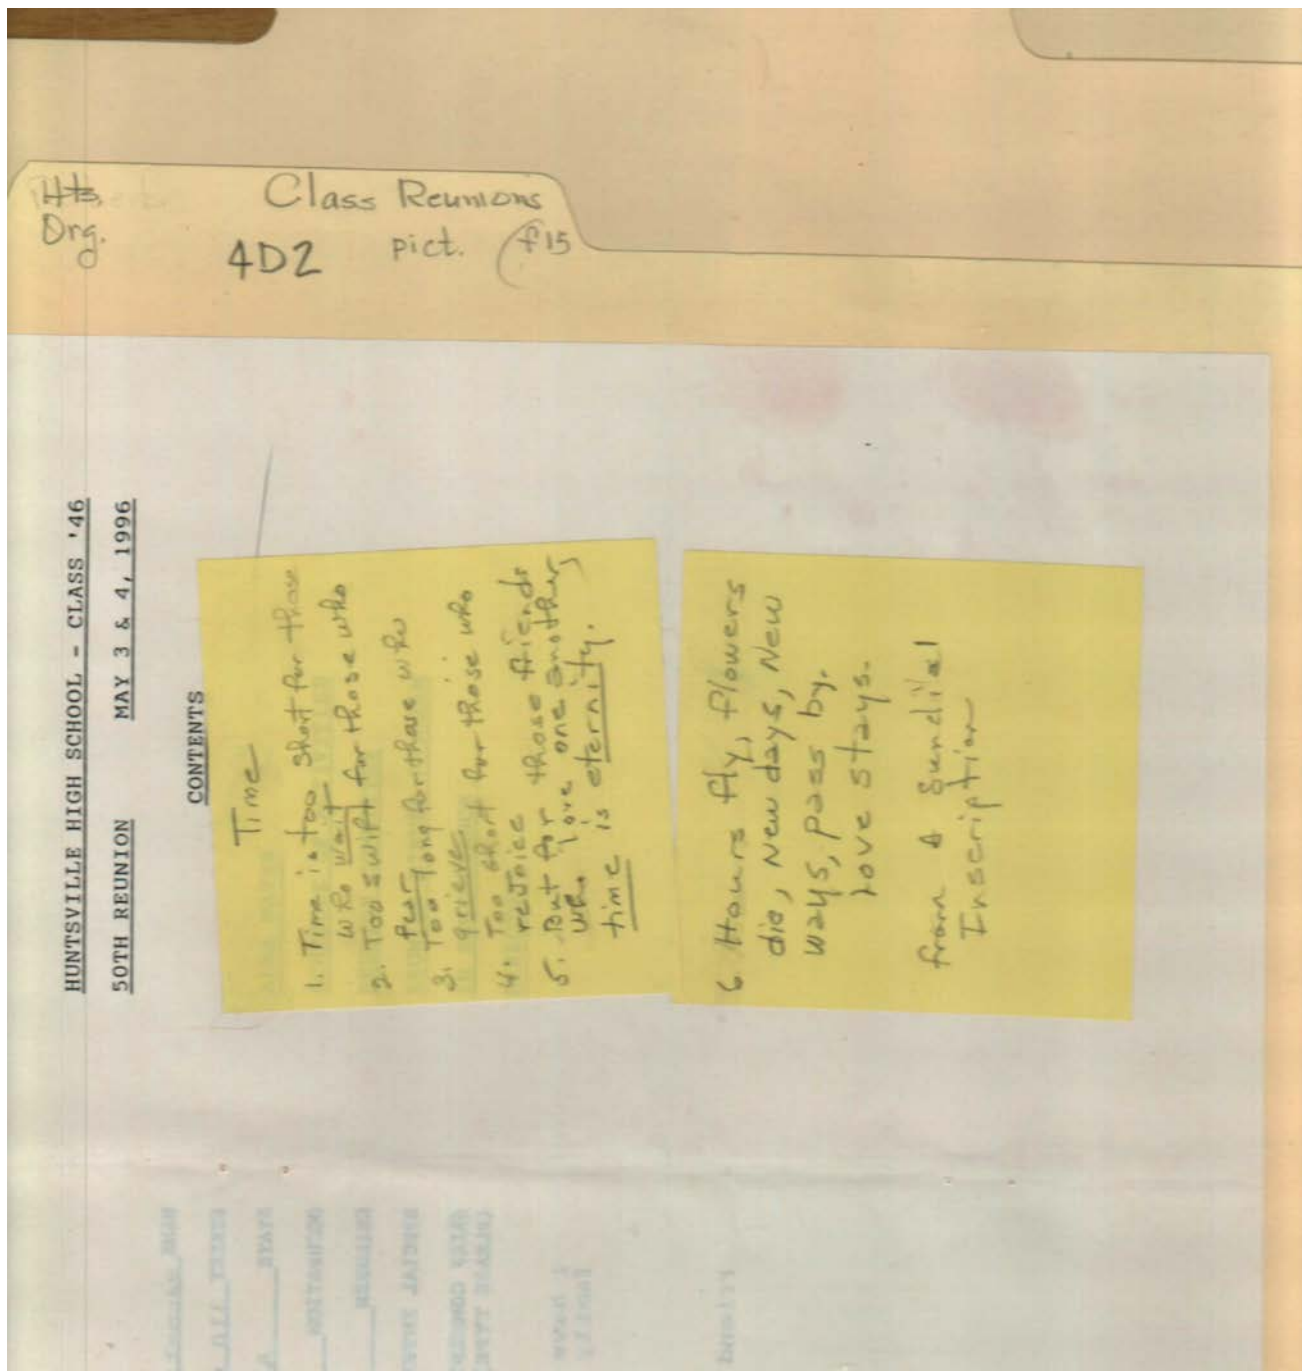 Hts. Class Reunions
Org. 4D2 pict. (f15
HUNTSVILLE HIGH SCHOOL - CLASS '46
50TH REUNION MAY 3 & 4, 1996
CONTENTS
Time
1. Time is too short for those
who wait
2. Too swift for those who
fear
3. Too long for those who
grieve
4. Too short for those who
rejoice
5. But for those friends
who love one another
time is eternity.
6 Hours fly, flowers
die, New days, New
ways, pass by.
love stays.
from A Sundial
Inscription
STATE
CHILDREN
friend